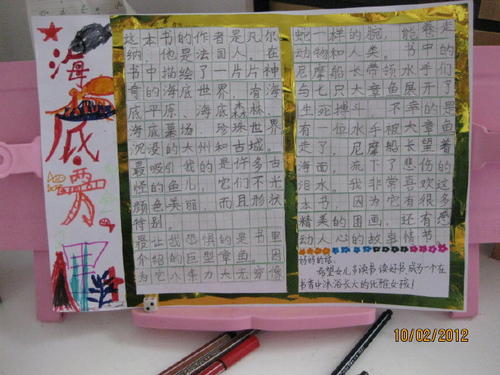 海底
这本书的作者是凡尔
纳，他是法国人。在
书中描绘了一片片神
奇的海底世界，有海
底平原、海底森林、
海底墓场、珍珠世界、
沉没的大州和古城。
最吸引我的是许多古
怪的鱼儿，它们不光
颜色美丽，而且形状
特别。
最让我恐惧的是书里
介绍的巨型章鱼。因
为它八条力大无穷像
蛇一样的腕，能卷走
动物和人类。书中的
尼摩船长带领水手们
与七只大章鱼展开了
生死搏斗，不幸的是
有一位水手被大章鱼
走了，尼摩船长望着
海面，流下了悲伤的
泪水。我非常喜欢这
本书，因为它有很多
精美的图画，还有感
动人心的故事情节。
妈妈的话：
希望女儿多读书，读好书，成为一个在
书香中沐浴长大的优雅女孩！
10/02/2012